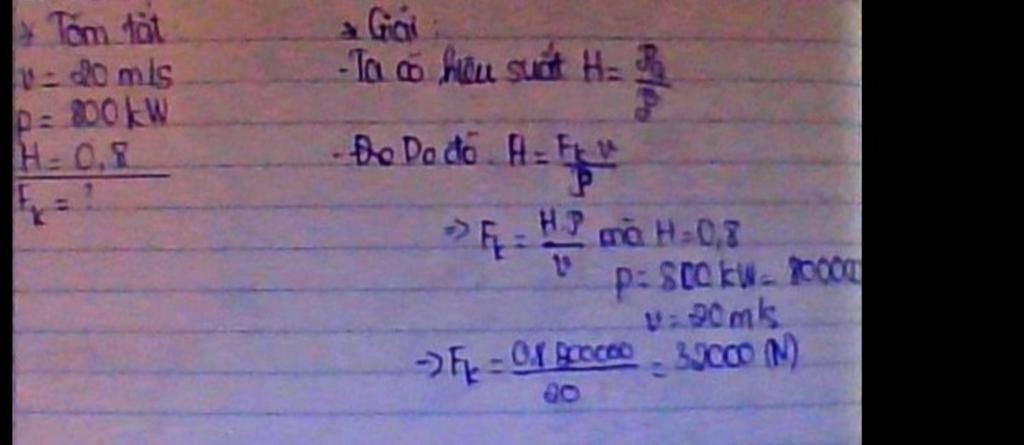 * Tóm tắt
v = 20 m/s
P = 800 kW
H = 0,8
F_k = ?
* Giải:
- Ta có hiệu suất H =
- Do Do đó H = F_k v / P
=> F_k = H.P / v mà H = 0,8
P = 800 kW = 80000
v = 20 m/s
-> F_k = 0,8 800000 / 20 = 32000 (N)